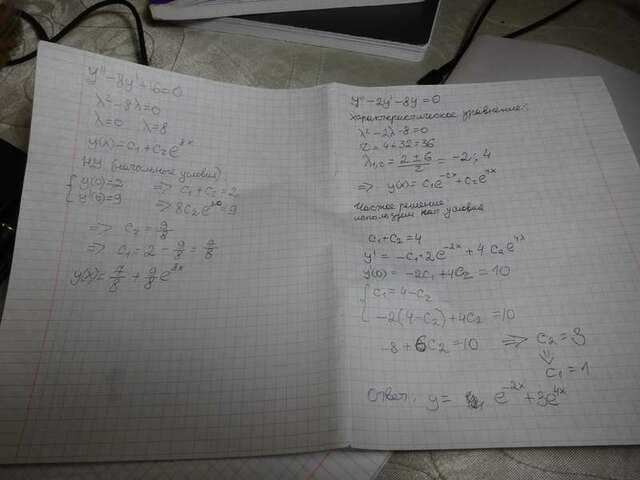 y'' - 8y' + 16 = 0
λ² - 8λ = 0
λ = 0 λ = 8
y(x) = c₁ + c₂e^8x
НУ (начальные условия)
{ y(0) = 2 => c₁ + c₂ = 2
y'(0) = 9 => 8c₂e^8·0 = 9
=> c₂ = 9/8
=> c₁ = 2 - 9/8 = 7/8
y(x) = 7/8 + 9/8 e^8x
y'' - 2y' - 8y = 0
Характеристическое уравнение:
λ² - 2λ - 8 = 0
= 4 + 32 = 36
λ₁,₂ = (2 ± 6)/2 = -2; 4
=> y(x) = c₁e^-2x + c₂e^4x
Частное решение
используем нач условия
c₁ + c₂ = 4
y' = -c₁·2e^-2x + 4c₂e^4x
y'(0) = -2c₁ + 4c₂ = 10
{ c₁ = 4 - c₂
-2(4 - c₂) + 4c₂ = 10
-8 + 6c₂ = 10 => c₂ = 3
⇓
c₁ = 1
Ответ: y = e^-2x + 3e^4x